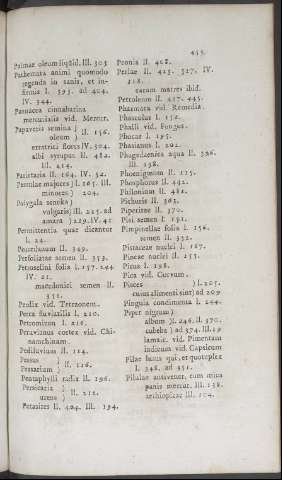 455.
Palmae oleum liquid. III. 303
Pathemata animi quomodo
regenda in sanis, et in-
firmis I. 395. ad 404.
IV. 344.
Panacea cinnabarina
mercurialis vid. Mercur.
Papaveris semina }
oleum } II. 156.
erratici flores IV. 304.
albi syrupus II. 482.
III. 414.
Parietaria II. 164. IV. 32.
Pectenculum II. 349.
Perfoliatae semen II. 353.
Petroselini folia I. 157. 244
IV. 21.
macedonici semen II.
351.
Perdix vid. Tetraonem.
Perca fluviatilis I. 210.
Petromizon I. 216.
Peruvianus cortex vid. Chi-
nam chinam.
Pediluvium II. 114.
Pessus }
Pessarium } II. 116.
Pentaphylli radix II. 196.
Persicaria }
urens } II. 212.
Petasites II. 404. III. 194.
Peonia II. 408.
Perlae II. 425. 527. IV.
318.
earum matres ibid.
Petroleum II. 417. 435.
Pharmaca vid. Remedia.
Phaseolus I. 152.
Phalli vid. Fungos.
Phocae I. 195.
Phasianus I. 202.
Phagedaenica aqua II. 536.
III. 138.
Phosphorus II. 442.
Pichuris II. 363.
Piperitae II. 370.
Pisi semen I. 151.
Pimpinellae folia I. 156.
semen II. 352.
Pistaceae nuclei I. 167.
Pineae nuclei II. 155.
Picus I. 198.
Pica vid. Corvum.
Pisces } I. 205.
cuius alimenti sint} ad 209
Pinguia condimenta I. 244.
Piper nigrum}
album }I. 246. II. 370.
cubeba } ad 374. III. 19
jamaic. vid. Pimentam
indicum vid. Capsicum
Pilae lusus qui, et quotuplex
I. 348. ad 351.
Pilulae antivener. cum mica
panis mercur. III. 138.
aethiopicae III. 104.